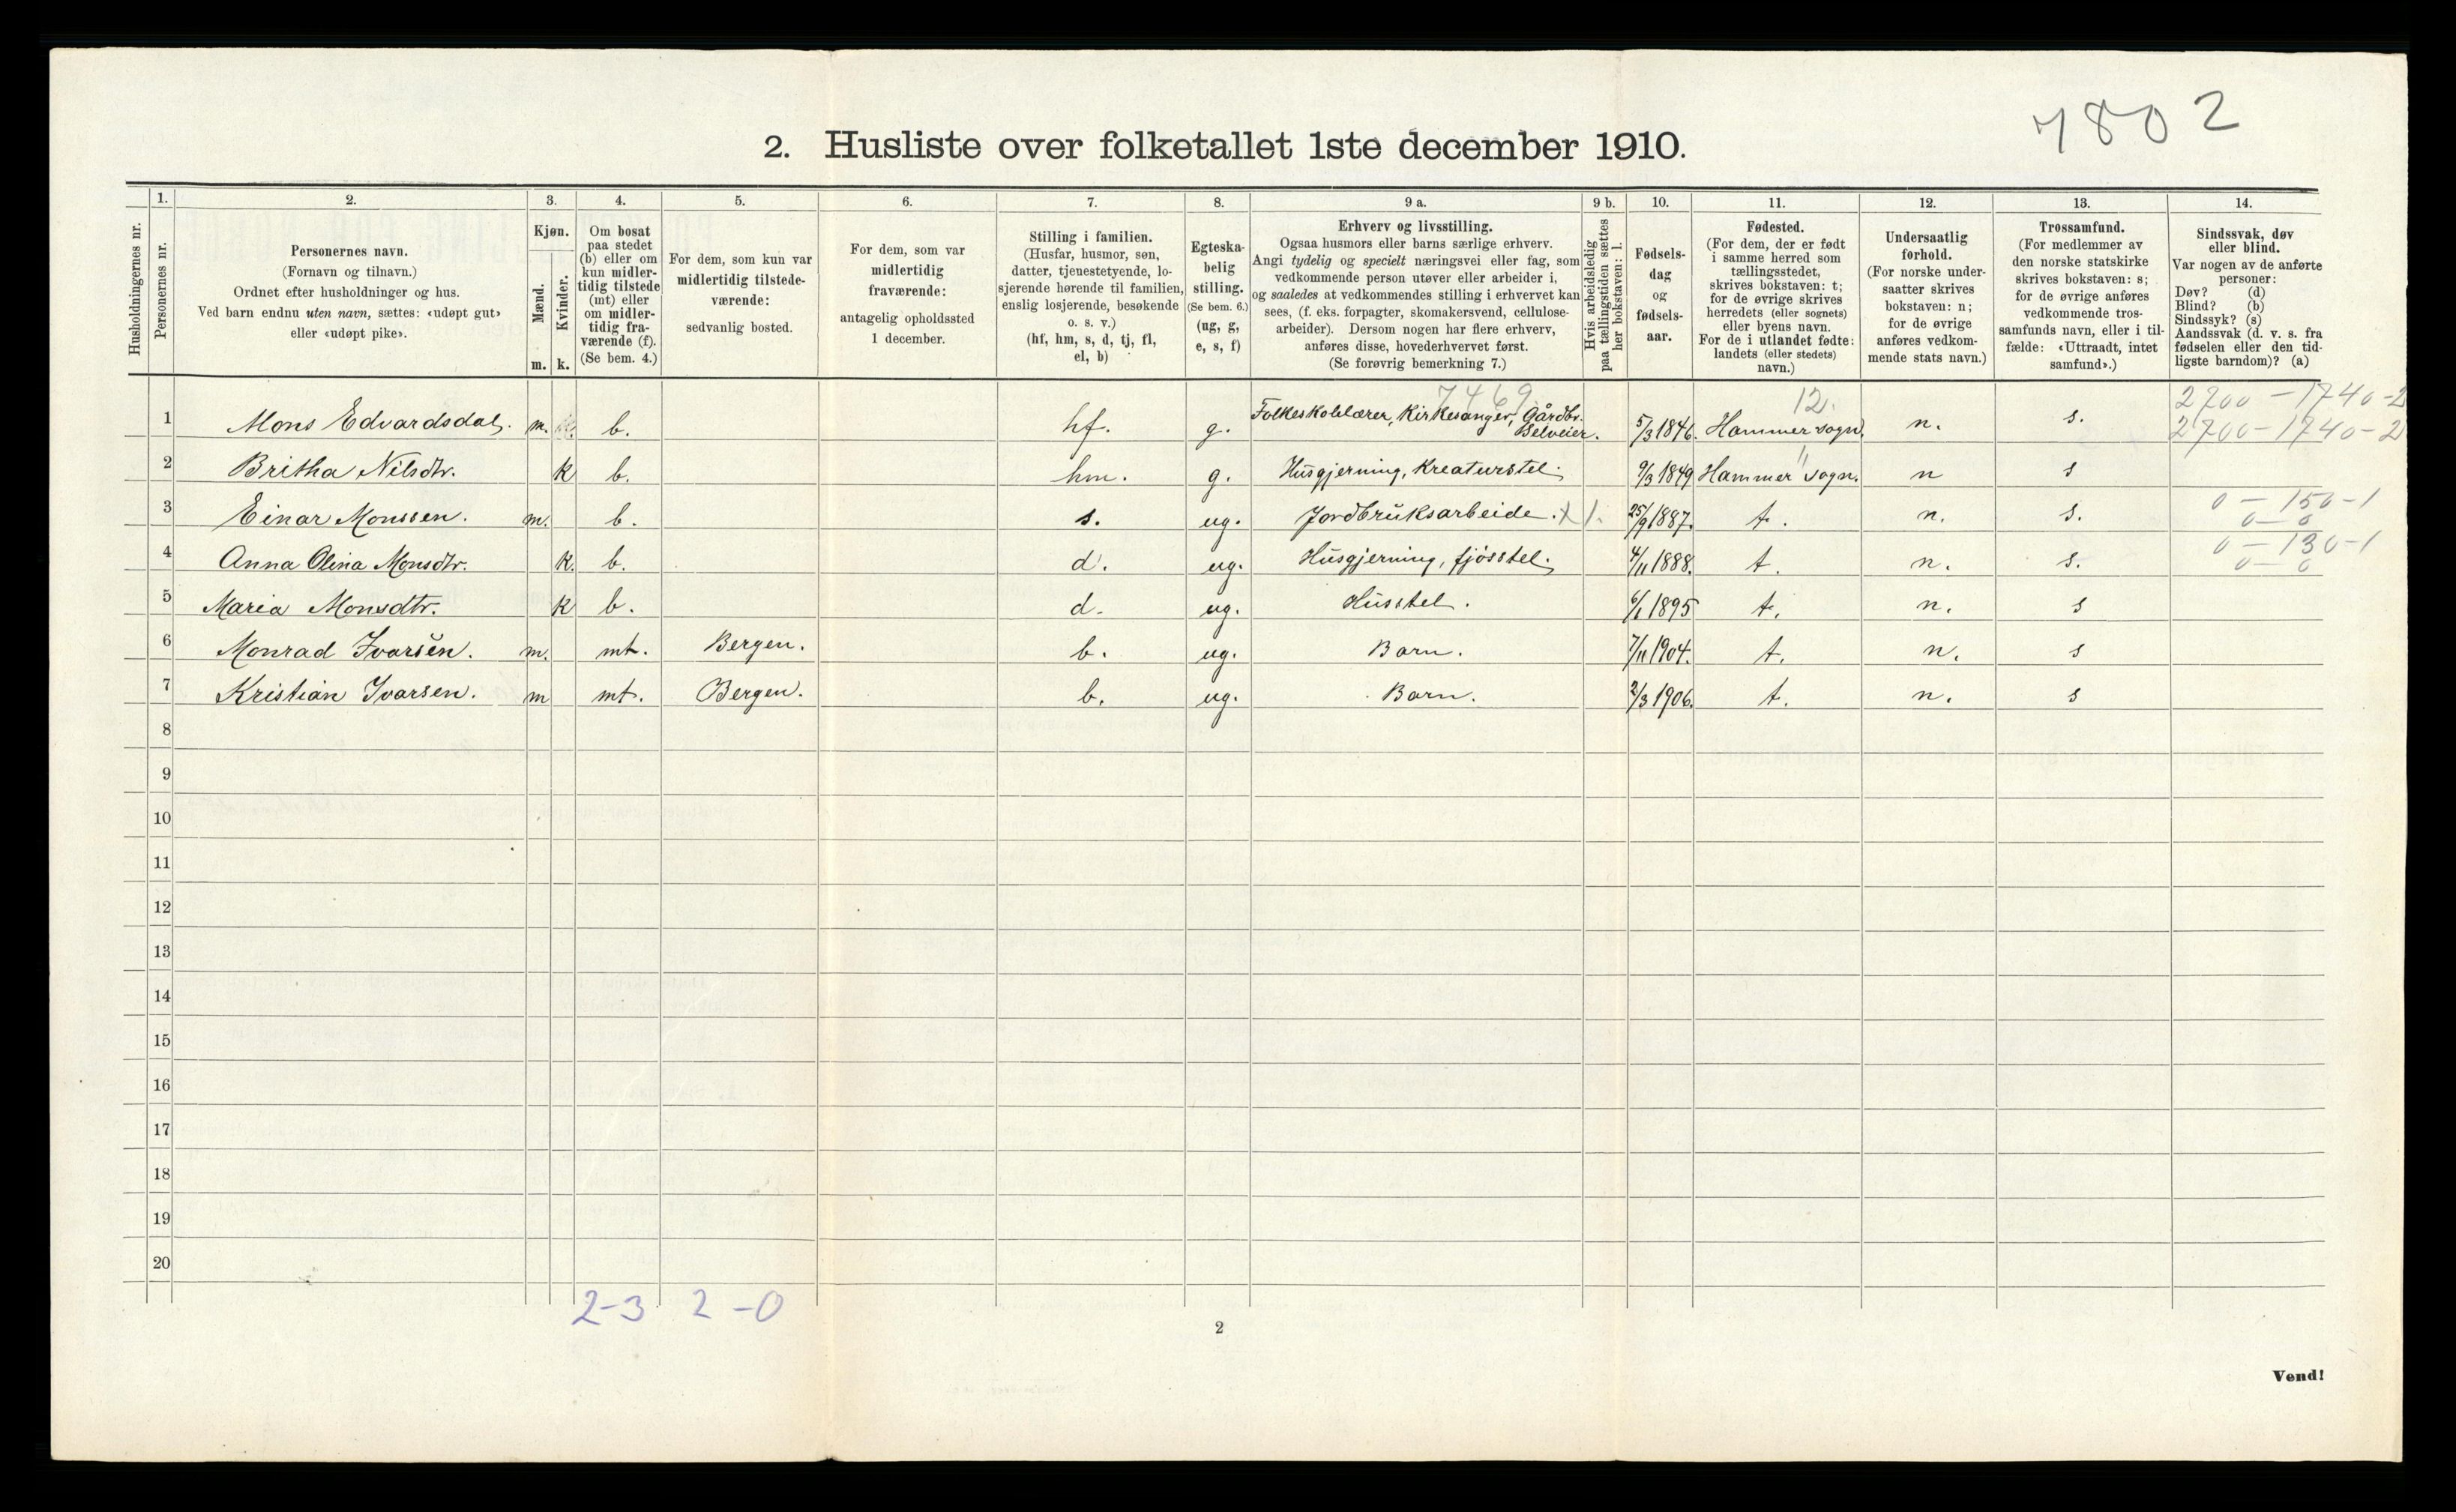 7802
2. Husliste over folketallet 1ste december 1910.
1. 2. 3. 4. 5. 6. 7. 8. 9 a. 9 b. 10. 11. 12. 13. 14.
Husholdningernes nr.
Personernes nr.
Personernes navn.
(Fornavn og tilnavn.)
Ordnet efter husholdninger og hus.
Ved barn endnu uten navn, sættes: «udøpt gut»
eller «udøpt pike».
Kjøn.
Mænd.
Kvinder.
m. k.
Om bosat
paa stedet
(b) eller om
kun midler-
tidig tilstede
(mt) eller
om midler-
tidig fra-
værende (f).
(Se bem. 4.)
For dem, som kun var
midlertidig tilstede-
værende:
sedvanlig bosted.
For dem, som var
midlertidig
fraværende:
antagelig opholdssted
1 december.
Stilling i familien.
(Husfar, husmor, søn,
datter, tjenestetyende, lo-
sjerende hørende til familien,
enslig losjerende, besøkende
o. s. v.)
(hf, hm, s, d, tj, fl,
el, b)
Egteska-
belig
stilling.
(Se bem. 6.)
(ug, g,
e, s, f)
Erhverv og livsstilling.
Ogsaa husmors eller barns særlige erhverv.
Angi tydelig og specielt næringsvei eller fag, som
vedkommende person utøver eller arbeider i,
og saaledes at vedkommendes stilling i erhvervet kan
sees, (f. eks. forpagter, skomakersvend, cellulose-
arbeider). Dersom nogen har flere erhverv,
anføres disse, hovederhvervet først.
(Se forøvrig bemerkning 7.)
Hvis arbeidsledig
paa tællingstiden sættes
her bokstaven: l.
Fødsels-
dag
og
fødsels-
aar.
Fødested.
(For dem, der er født
i samme herred som
tællingsstedet,
skrives bokstaven: t;
for de øvrige skrives
herredets (eller sognets)
eller byens navn.
For de i utlandet fødte:
landets (eller stedets)
navn.)
Undersaatlig
forhold.
(For norske under-
saatter skrives
bokstaven: n;
for de øvrige
anføres vedkom-
mende stats navn.)
Trossamfund.
(For medlemmer av
den norske statskirke
skrives bokstaven: s;
for de øvrige anføres
vedkommende tros-
samfunds navn, eller i til-
fælde: «Uttraadt, intet
samfund».)
Sindssvak, døv
eller blind.
Var nogen av de anførte
personer:
Døv? (d)
Blind? (b)
Sindssyk? (s)
Aandssvak (d. v. s. fra
fødselen eller den tid-
ligste barndom)? (a)
7469 12. 2700-1740-2
1 Mons Edvardsdal. m. b. hf. g. Folkeskolelærer, Kirkesanger, Gårdbr. Selveier. 5/3 1846. Hammer sogn. n. s. 2700-1740-2
2 Britha Nilsdtr. k b. hm. g. Husgjerning, Kreaturstel. 9/3 1849 Hammer sogn. n s
0-150-1
3 Einar Monssen. m. b. s. ug. Jordbruksarbeide. X 1. 25/9 1887. t. n. s. 0-0
0-130-1
4 Anna Olina Monsdtr. k. b. d. ug. Husgjerning, fjøsstel. 4/11 1888. t. n. s. 0-0
5 Maria Monsdtr. k b. d. ug. Husstel. 6/1 1895 t. n. s
6 Monrad Ivarsen. m. mt. Bergen. b. ug. Barn. 7/11 1904. t. n. s
7 Kristian Ivarsen. m mt. Bergen. b. ug. Barn. 2/3 1906. t. n. s
8
9
10
11
12
13
14
15
16
17
18
19
20
2-3 2-0
2
Vend!